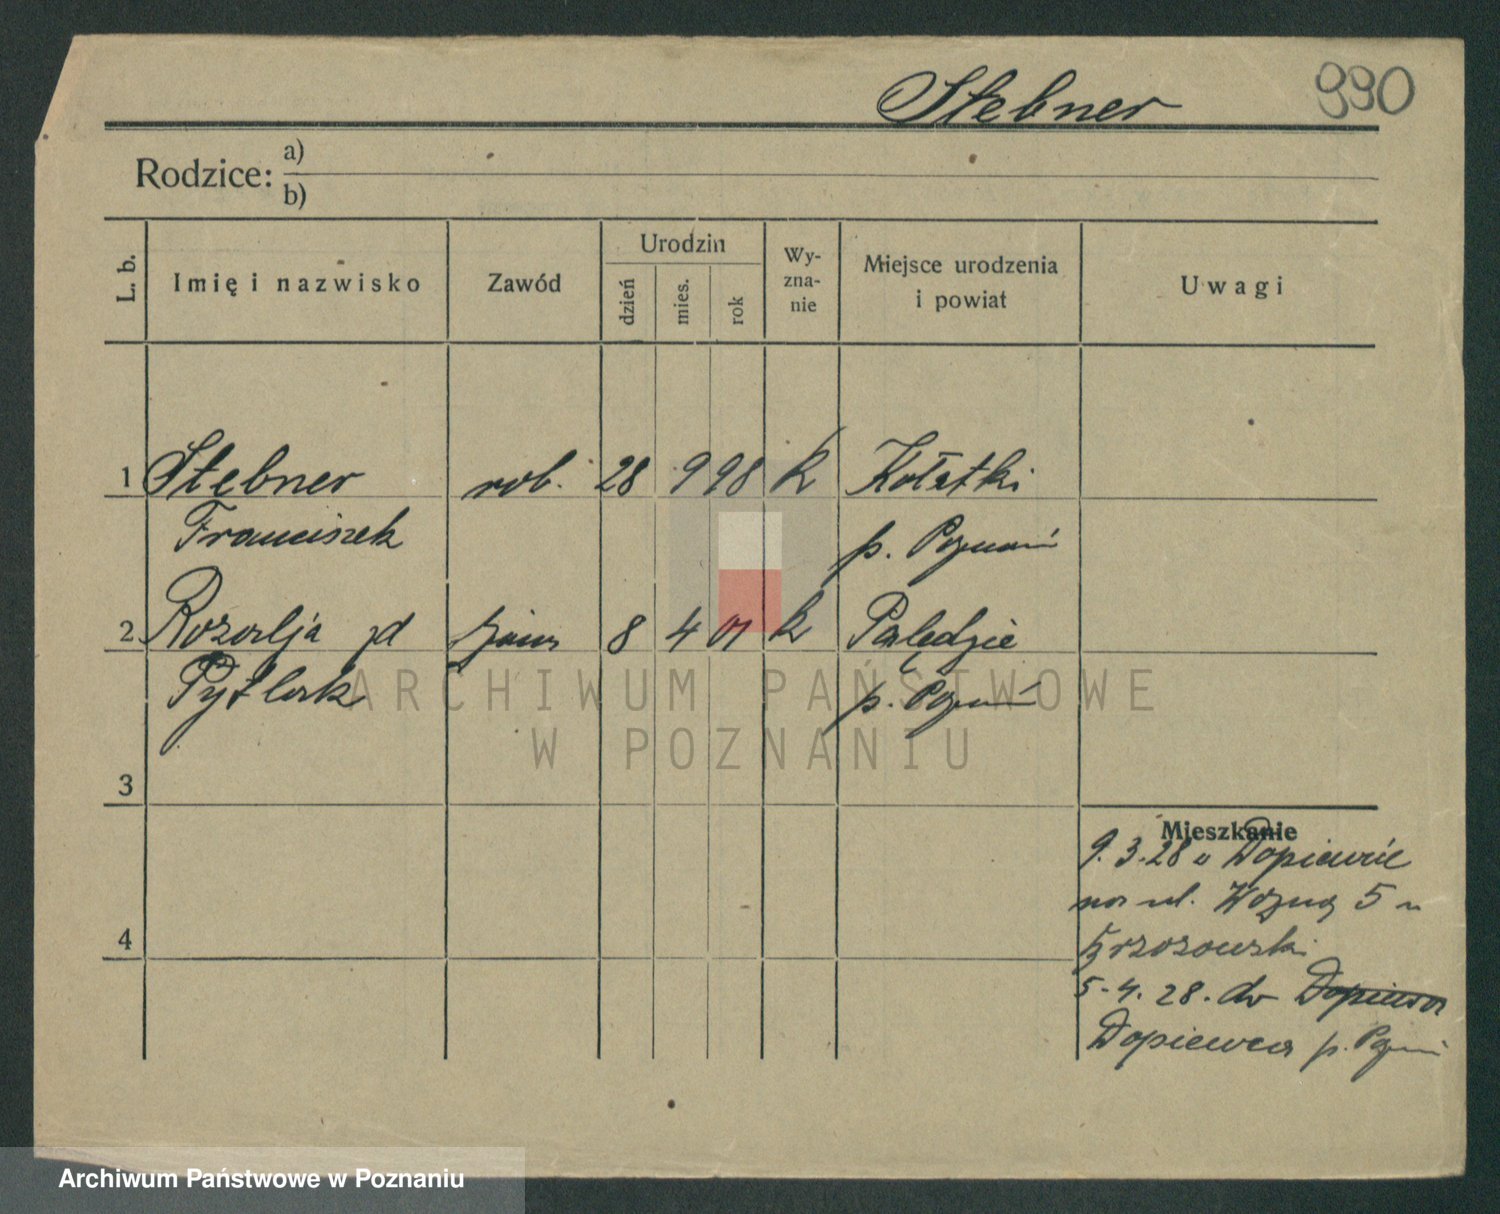 Stebner 990
Rodzice: a)
b)
L. b. Imię i nazwisko Zawód Urodzin dzień mies. rok Wy-zna-nie Miejsce urodzenia i powiat Uwagi
1 Stebner rob. 28 9 98 k Kołatki
Franciszek p. Poznań
2 Rozalja zd 8 4 01 k Palędzie
Pytlak p. Pozn
ARCHIWUM PAŃSTWOWE
W POZNANIU
3
Mieszkanie
9.3.28 z Dopiewic
na ul. Woźną 5 u
4
Brzozowski
5.4.28. do Dopiewa
Dopiewca p. Pozn
Archiwum Państwowe w Poznaniu